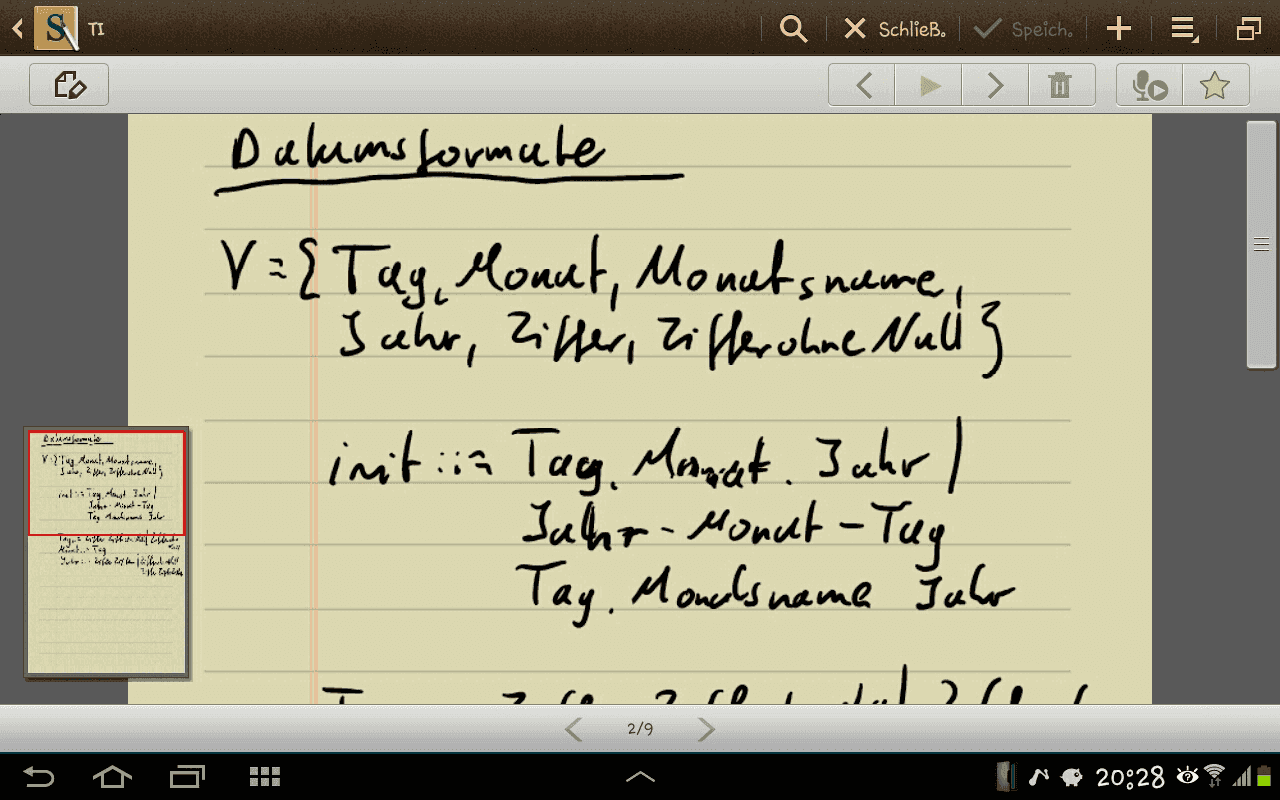 TI
Schließ.
Speich.
Datumsformate
V={Tag, Monat, Monatsname,
Jahr, Ziffer, ZifferohneNull}
init ::= Tag. Monat. Jahr |
Jahr - Monat - Tag
Tag. Monatsname Jahr
2/9
20:28